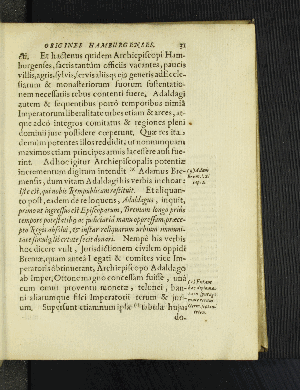 ORIGINES HAMBURGENSES. 31
Et hactenus quidem Archiepiscopi Ham-
burgenses, sacris tantùm officiis vacantes, paucis
villis, agris, sylvis, servis aliisque ejus generis ad Eccle-
siarum & monasteriorum suorum sustentatio-
nem necessariis rebus contenti fuere. Adaldagi
autem & sequentibus porrò temporibus nimiâ
Imperatorum liberalitate urbes etiam & arces, at-
que adeò integros comitatus & regiones pleni
domini jure possidere cœperunt. Quæ res ita
demùm potentes illos reddidit, ut nonnunquam
maximos etiam principes armis lacessere ausi fue-
rint. Ad hoc igitur Archiepiscopalis potentiæ
incrementum digitum intendit Adamus Bre-
mensis, dum vitam Adaldagi his verbis inchoat:
Iste est, qui nobis Rempublicam restituit. Et aliquan-
to post, eadem de re loquens, Adaldagus, inquit,
primò ut ingressus est Episcopatum, Bremam longo prius
tempore potestatibus ac judiciariâ manu oppressam præce-
pto Regis absolvi, & instar reliquarum urbium immuni-
tate simul & libertate fecit donari. Nempe his verbis
hoc dicere vult, Jurisdictionem civilem oppidi
Bremæ, quam antea Legati & comites vice Im-
peratoris obtinuerant, Archiepiscopo Adaldago
ab Imper. Ottone magno concessam fuisse, unà
cum omni proventu monetæ, telonei, ban-
ni aliarumque fisci Imperatorii rerum & jur-
ium. Supersunt etiamnum ipsæ tabulæ hujus
do-